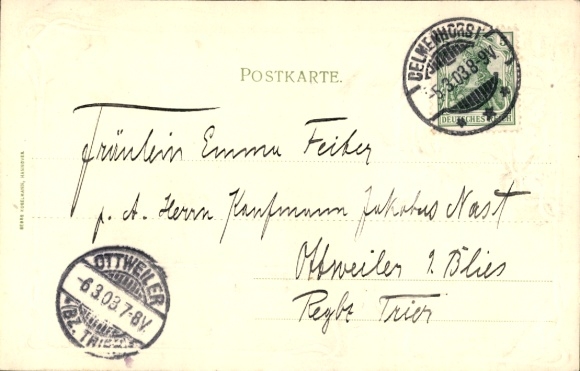 POSTKARTE.
DELMENHORST
-5.3.03.8-9V.
DEUTSCHES REICH
Fräulein Emma Feiber
p. A. Herrn Kaufmann Jakobus Nast
Ottweiler
Blies
Regbz Trier
OTTWEILER
-6.3.03.7-8V.
(BZ. TRIER)